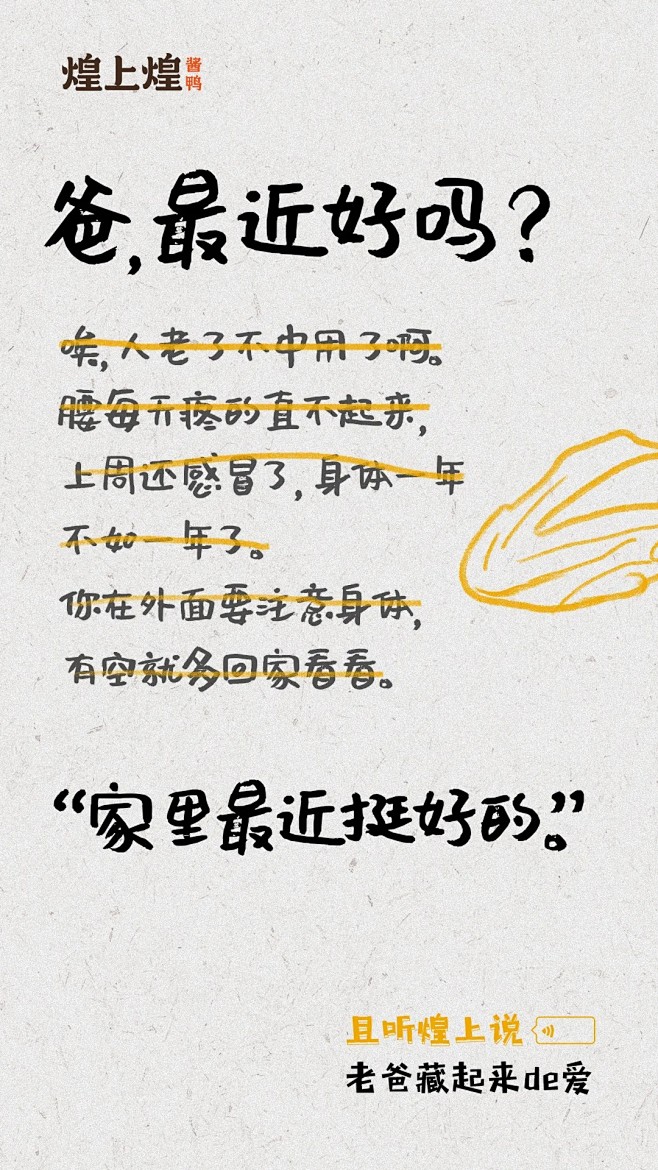 煌上煌 酱鸭
爸,最近好吗?
唉,人老了不中用了啊。
腰每天疼的直不起来,
上周还感冒了,身体一年
不如一年了。
你在外面要注意身体,
有空就多回家看看。
“家里最近挺好的。”
且听煌上说
老爸藏起来de爱